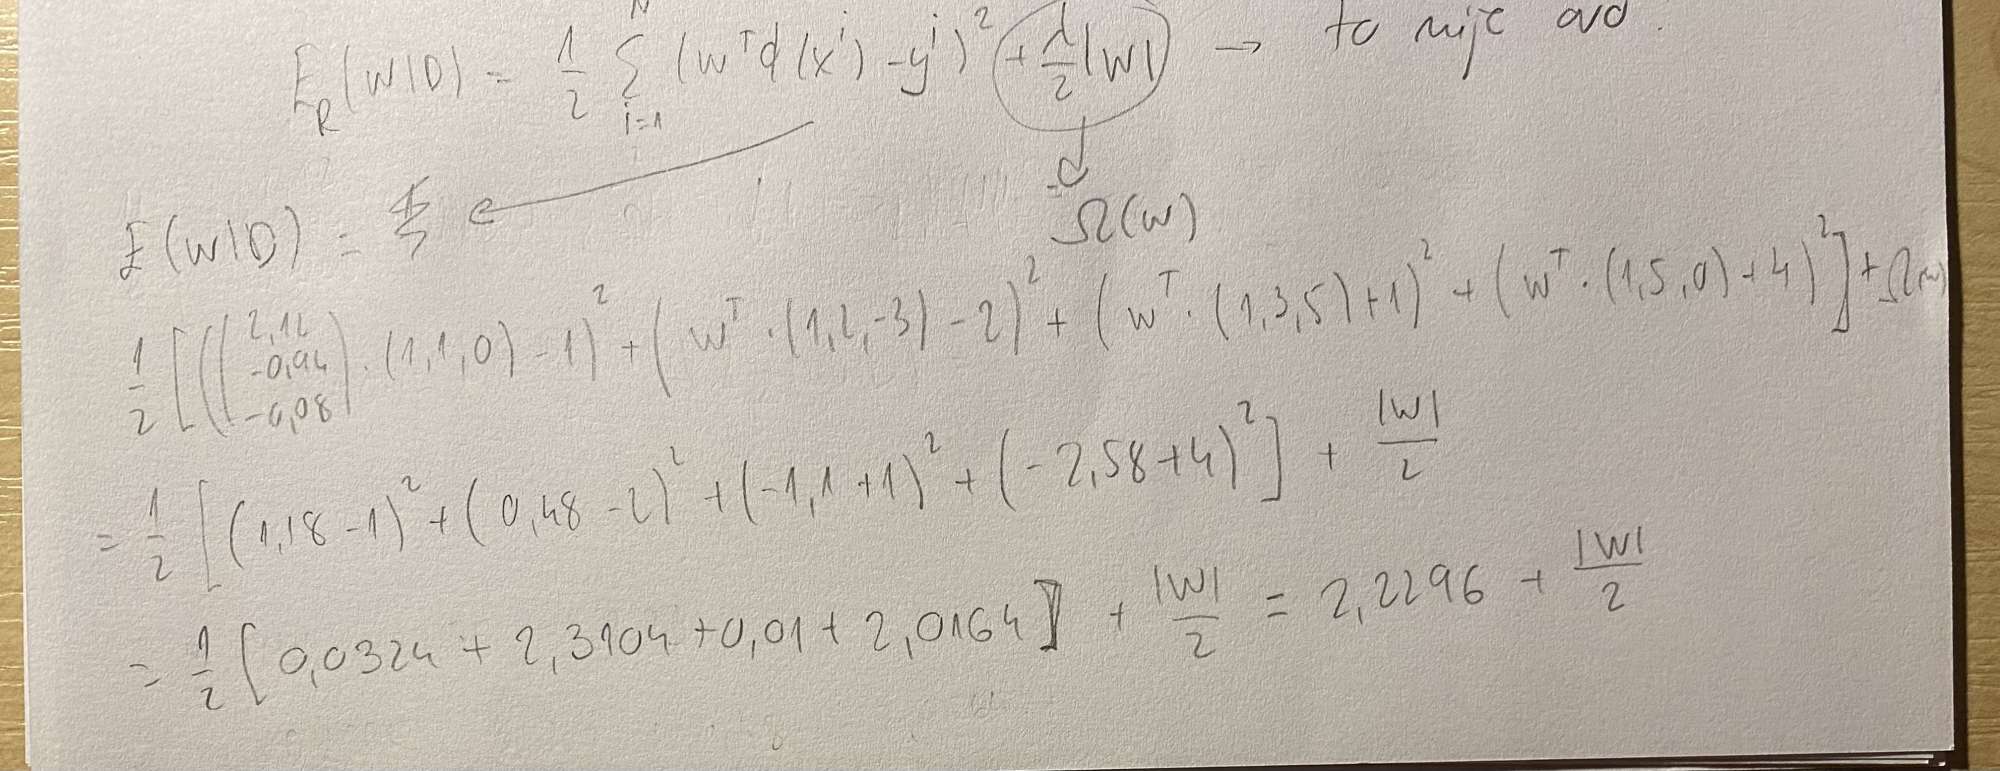 E_R(w|D) = 1/2 Σ_{i=1}^{N} (w^T φ(x^i) - y^i)^2 + λ/2 |w| → to nije ovo.
Ω(w)
E(w|D) =
1/2 [((2,12 -0,94 -0,08) · (1,1,0) - 1)^2 + (w^T · (1,2,-3) - 2)^2 + (w^T · (1,3,5) + 1)^2 + (w^T · (1,5,0) + 4)^2] + Ω(w)
= 1/2 [(1,18 - 1)^2 + (0,48 - 2)^2 + (-1,1 + 1)^2 + (-2,58 + 4)^2] + |w|/2
= 1/2 [0,0324 + 2,3104 + 0,01 + 2,0164] + |w|/2 = 2,2296 + |w|/2